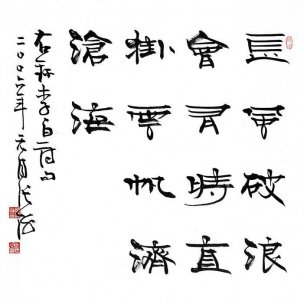 長風破浪
會有時直
掛雲帆濟
滄海
右錄李白詩句
二〇〇六年元月